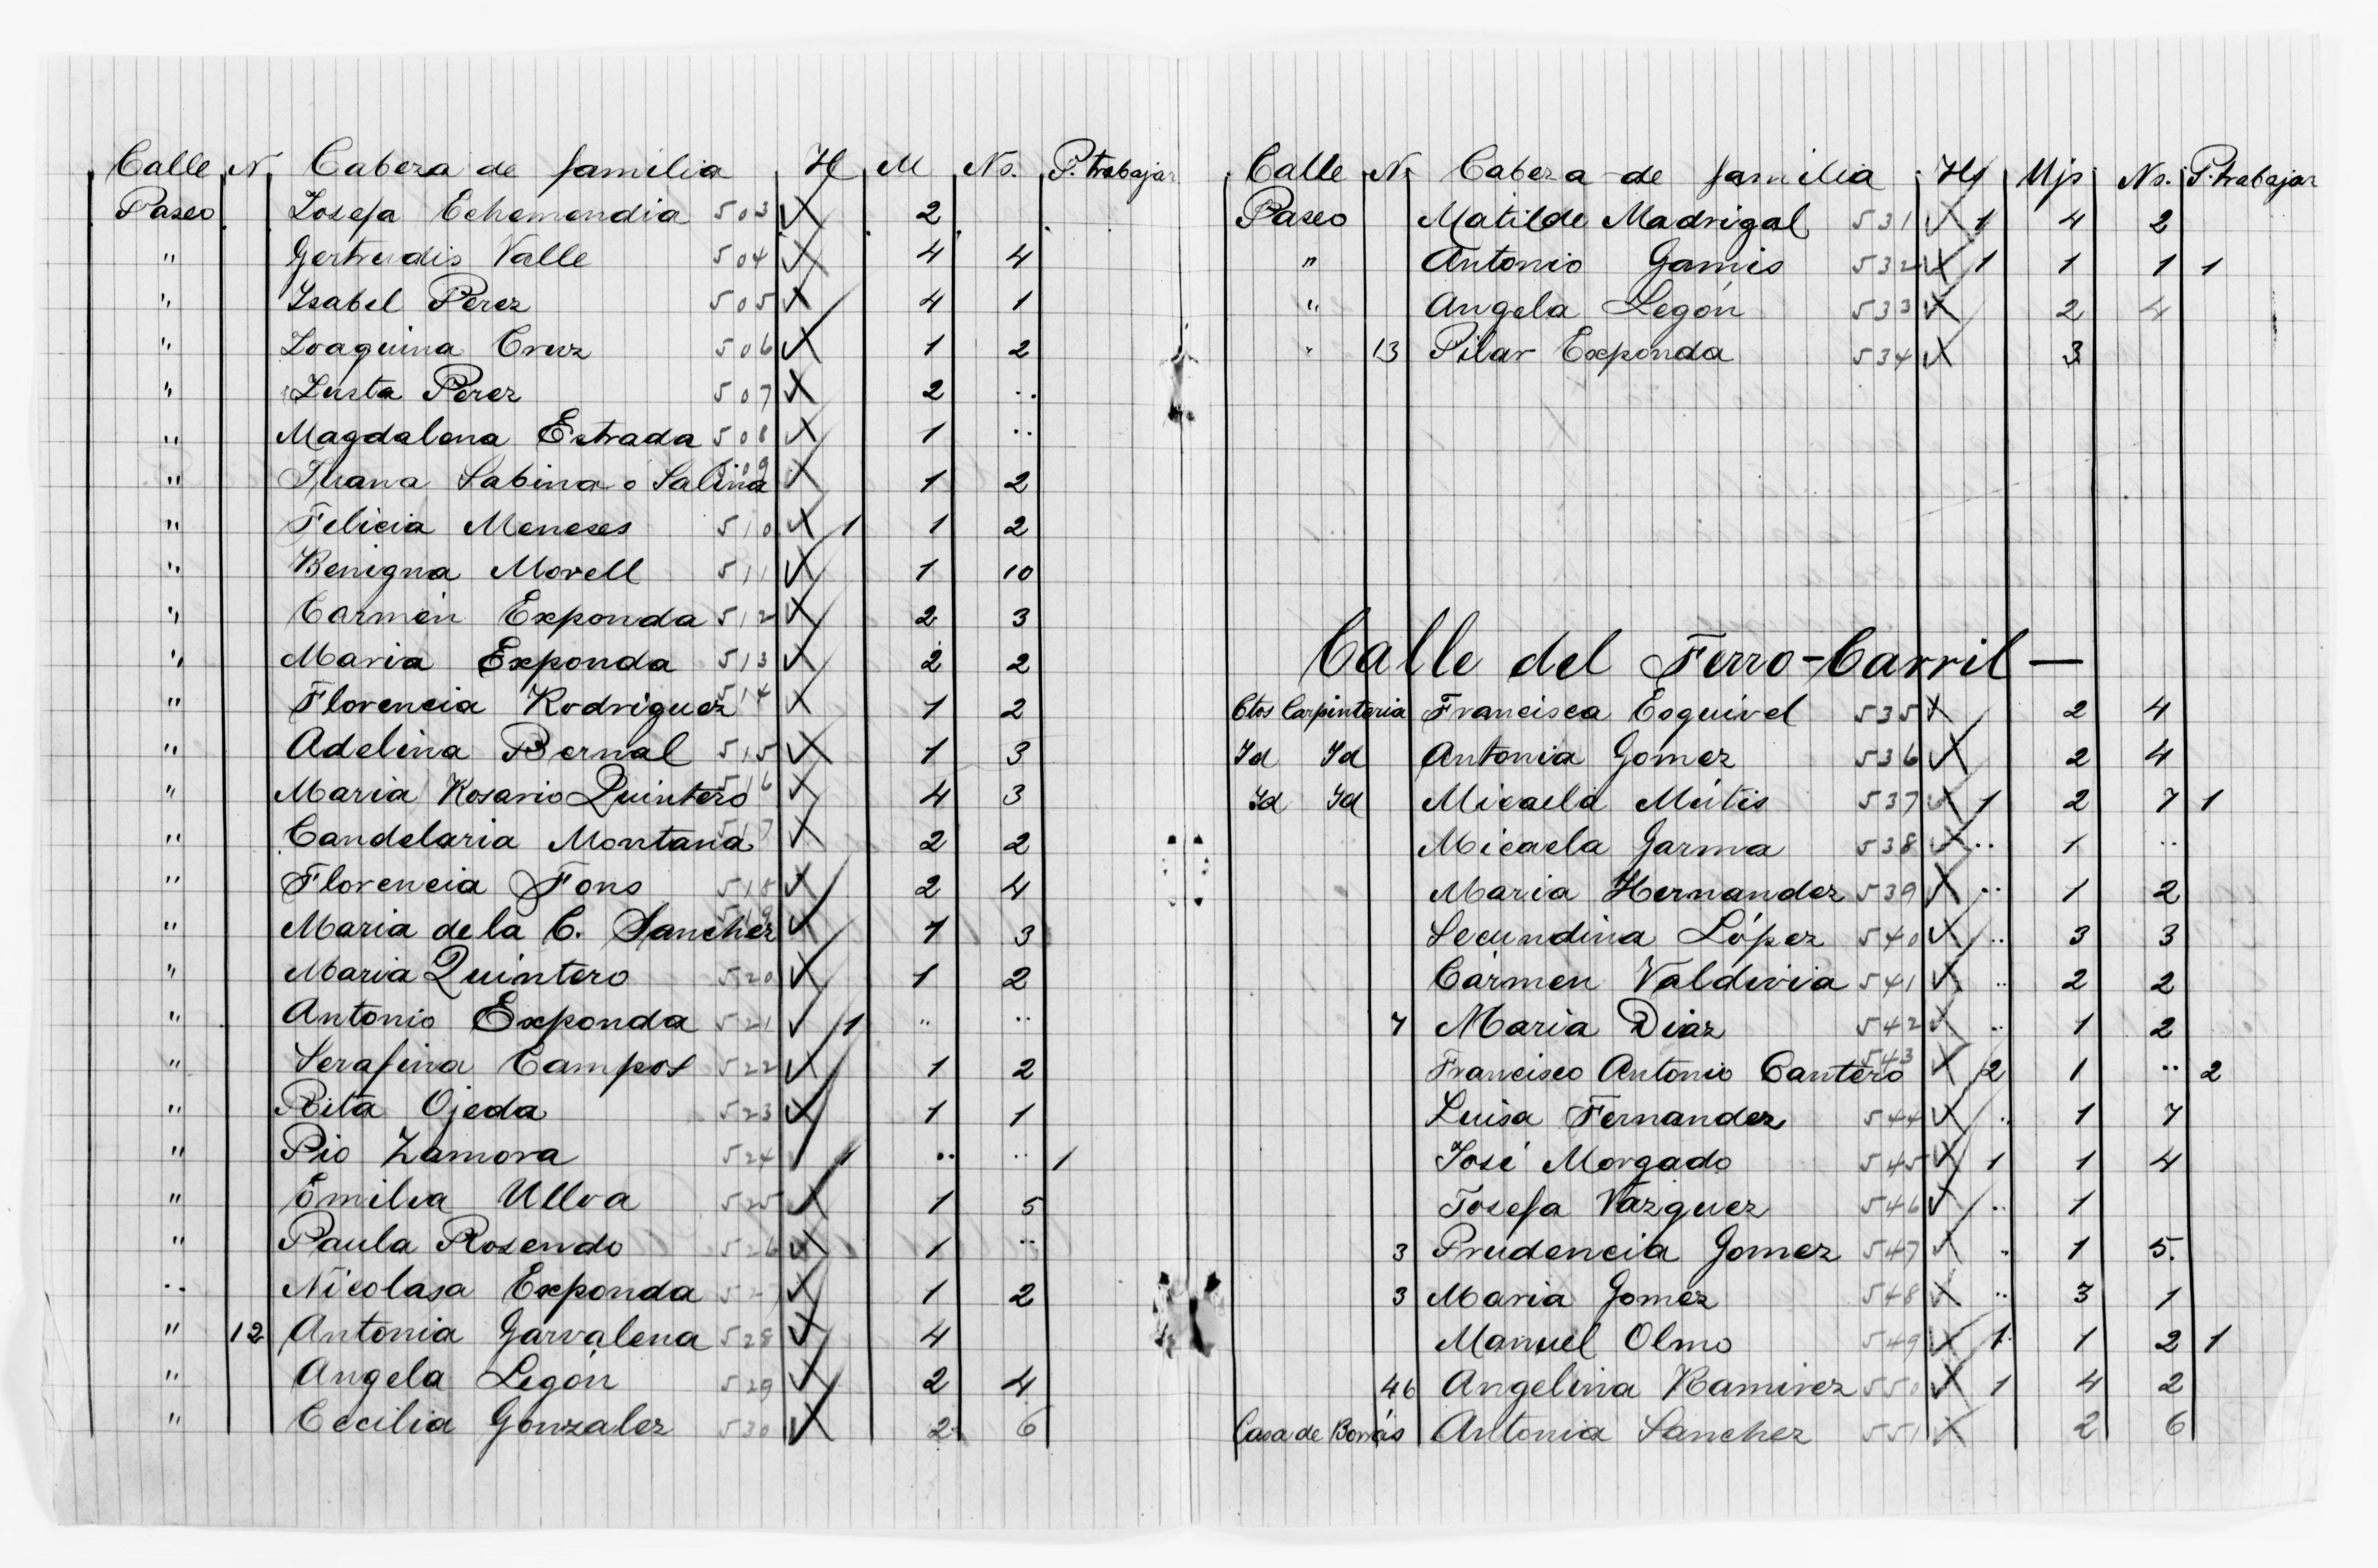 Calle N. Cabeza de familia H M Ns. P. trabajar
Paseo Josefa Echemendia 503 2
" Gertrudis Valle 504 4 4
" Isabel Perez 505 4 1
" Joaquina Cruz 506 1 2
" Justa Perez 507 2 ..
" Magdalena Estrada 508 1 ..
" Juana Sabina o Salina 509 1 2
" Felicia Meneses 510 1 1 2
" Benigna Morell 511 1 10
" Carmen Exponda 512 2 3
" Maria Exponda 513 2 2
" Florencia Rodriguez 514 1 2
" Adelina Bernal 515 1 3
" Maria Rosario Quintero 516 4 3
" Candelaria Montana 517 2 2
" Florencia Fons 518 2 4
" Maria de la C. Sanchez 519 1 3
" Maria Quintero 520 1 2
" Antonio Exponda 521 1 .. ..
" Serafina Campos 522 1 2
" Rita Ojeda 523 1 1
" Pio Zamora 524 1 .. .. 1
" Emilia Ulloa 525 1 5
" Paula Rosendo 526 1 ..
" Nicolasa Exponda 527 1 2
" 12 Antonia Garvalena 528 4
" Angela Legón 529 2 4
" Cecilia Gonzalez 530 2 6
Calle N. Cabeza de familia H Mjs Ns. P. trabajar
Paseo Matilde Madrigal 531 1 4 2
" Antonio Gamis 532 1 1 1 1
" Angela Legón 533 2 4
" 13 Pilar Exponda 534 3
Calle del Ferro-Carril —
Ctos Carpinteria Francisca Esquivel 535 2 4
Id Id Antonia Gomez 536 2 4
Id Id Micaela Mútis 537 1 2 7 1
Micaela Garma 538 .. 1 ..
Maria Hernandez 539 .. 1 2
Secundina López 540 .. 3 3
Carmen Valdivia 541 .. 2 2
7 Maria Diaz 542 .. 1 2
Francisco Antonio Cantero 543 2 1 .. 2
Luisa Fernandez 544 .. 1 7
José Morgado 545 1 1 4
Josefa Vazquez 546 .. 1
3 Prudencia Gomez 547 .. 1 5.
3 Maria Gomez 548 .. 3 1
Manuel Olmo 549 1 1 2 1
46 Angelina Ramirez 550 1 4 2
Casa de Borrás Antonia Sanchez 551 2 6